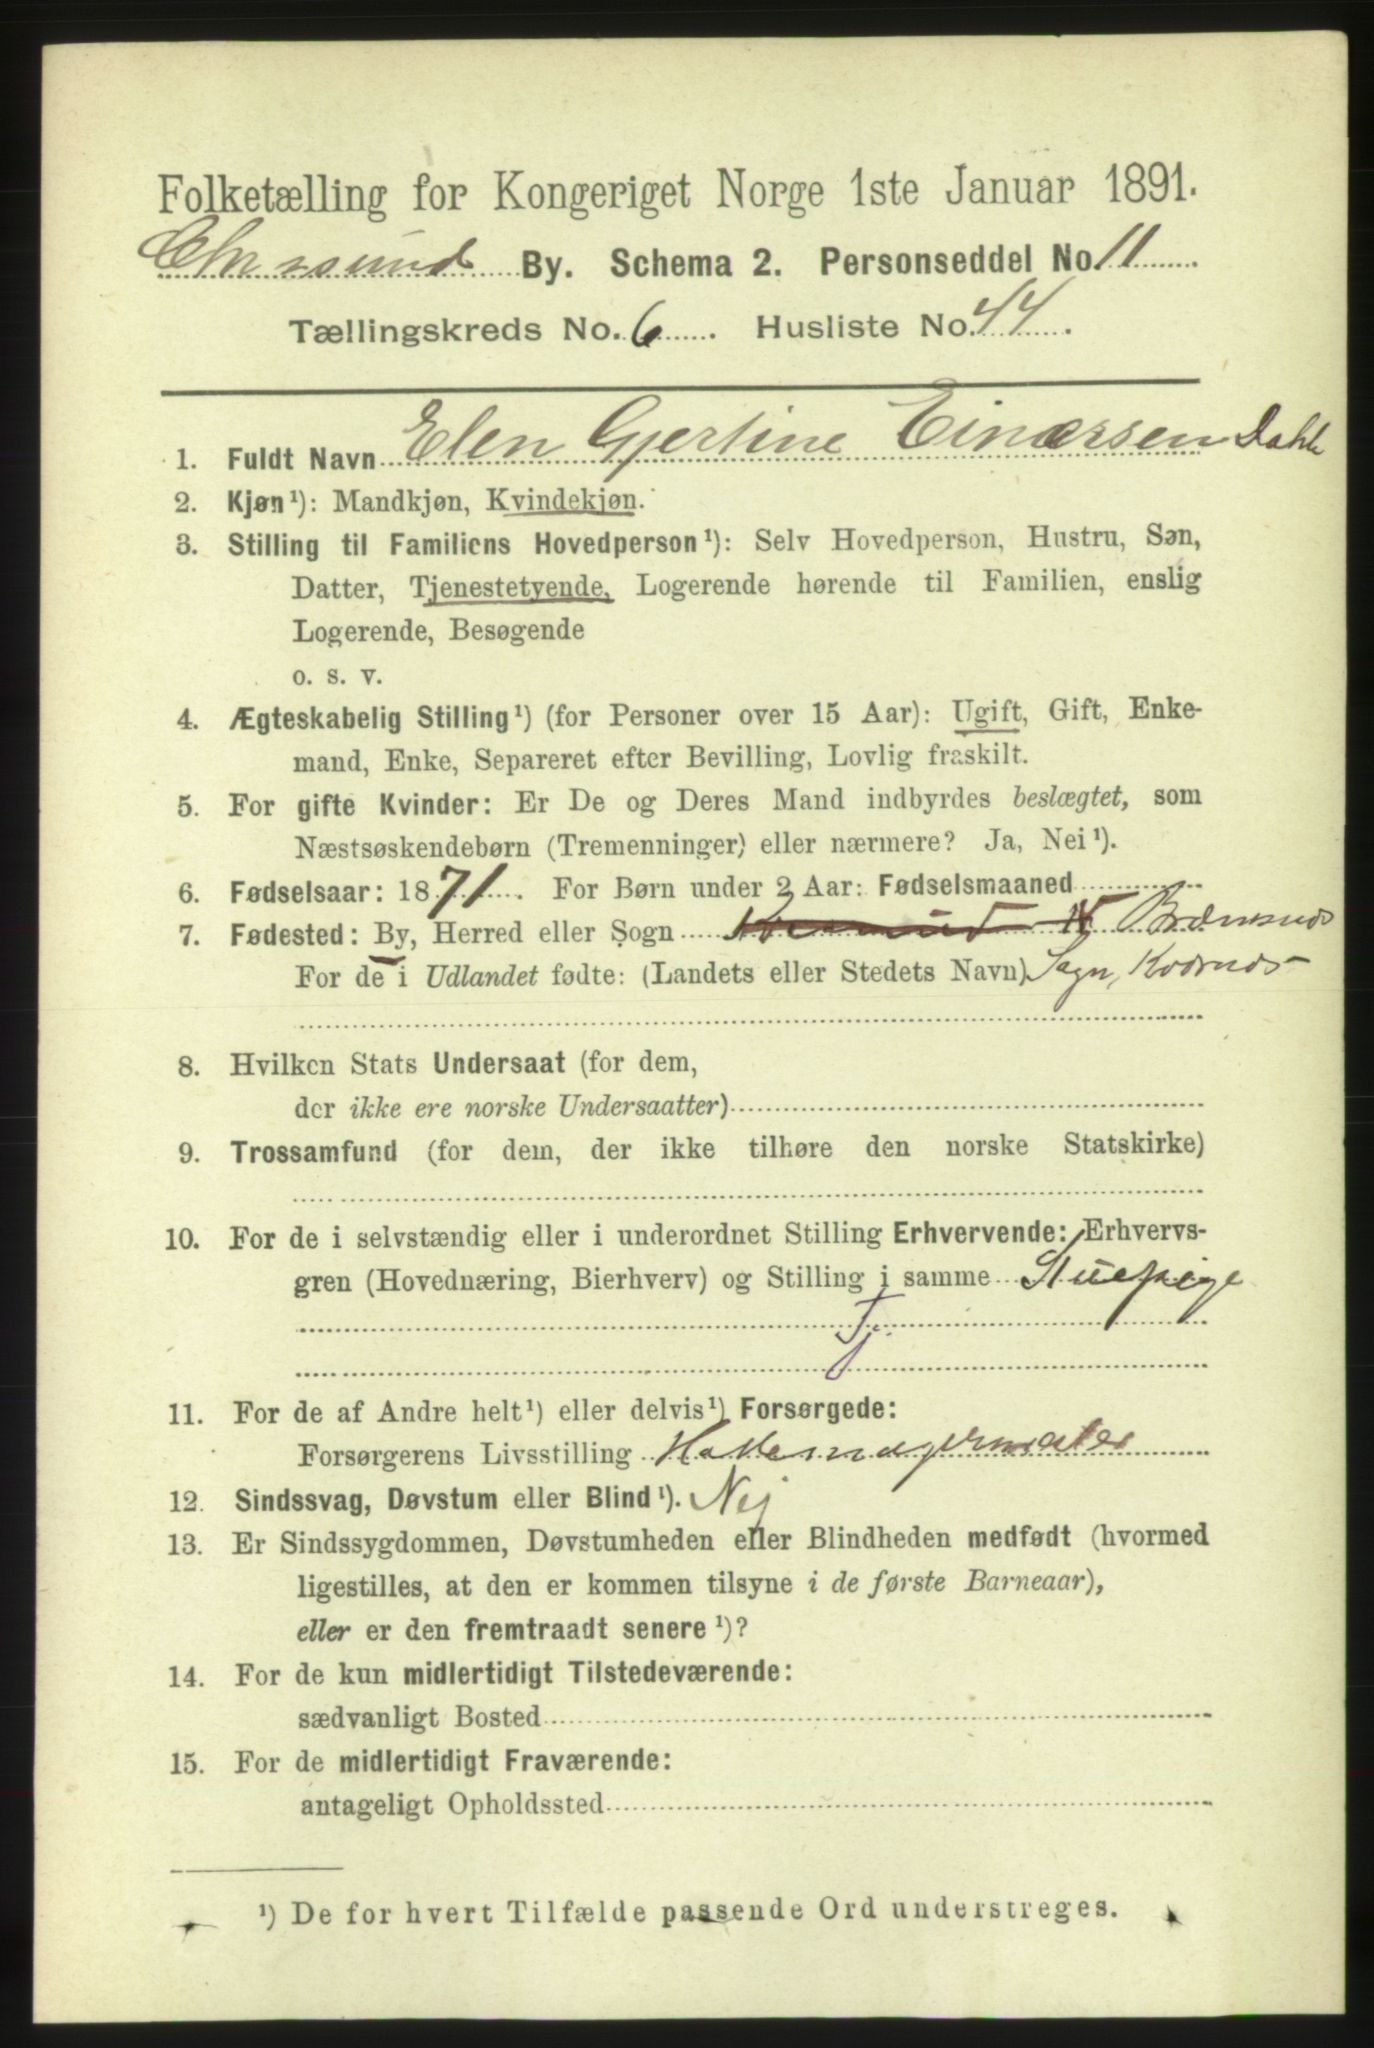 Folketælling for Kongeriget Norge 1ste Januar 1891.
Chrsund By. Schema 2. Personseddel No. 11
Tællingskreds No. 6. Husliste No. 44.
1. Fuldt Navn Elen Gjertine Einarsen Dahle
2. Kjøn¹): Mandkjøn, Kvindekjøn.
3. Stilling til Familiens Hovedperson¹): Selv Hovedperson, Hustru, Søn,
Datter, Tjenestetyende, Logerende hørende til Familien, enslig
Logerende, Besøgende
o. s. v.
4. Ægteskabelig Stilling¹) (for Personer over 15 Aar): Ugift, Gift, Enke-
mand, Enke, Separeret efter Bevilling, Lovlig fraskilt.
5. For gifte Kvinder: Er De og Deres Mand indbyrdes beslægtet, som
Næstsøskendebørn (Tremenninger) eller nærmere? Ja, Nei¹).
6. Fødselsaar: 1871. For Børn under 2 Aar: Fødselsmaaned
7. Fødested: By, Herred eller Sogn Bremsnes
For de i Udlandet fødte: (Landets eller Stedets Navn) Sogn, Kvernes
8. Hvilken Stats Undersaat (for dem,
der ikke ere norske Undersaatter)
9. Trossamfund (for dem, der ikke tilhøre den norske Statskirke)
10. For de i selvstændig eller i underordnet Stilling Erhvervende: Erhvervs-
gren (Hovednæring, Bierhverv) og Stilling i samme Stuepige
Tj.
11. For de af Andre helt¹) eller delvis¹) Forsørgede:
Forsørgerens Livsstilling
12. Sindssvag, Døvstum eller Blind¹). Nej
13. Er Sindssygdommen, Døvstumheden eller Blindheden medfødt (hvormed
ligestilles, at den er kommen tilsyne i de første Barneaar),
eller er den fremtraadt senere¹)?
14. For de kun midlertidigt Tilstedeværende:
sædvanligt Bosted
15. For de midlertidigt Fraværende:
antageligt Opholdssted
¹) De for hvert Tilfælde passende Ord understreges.